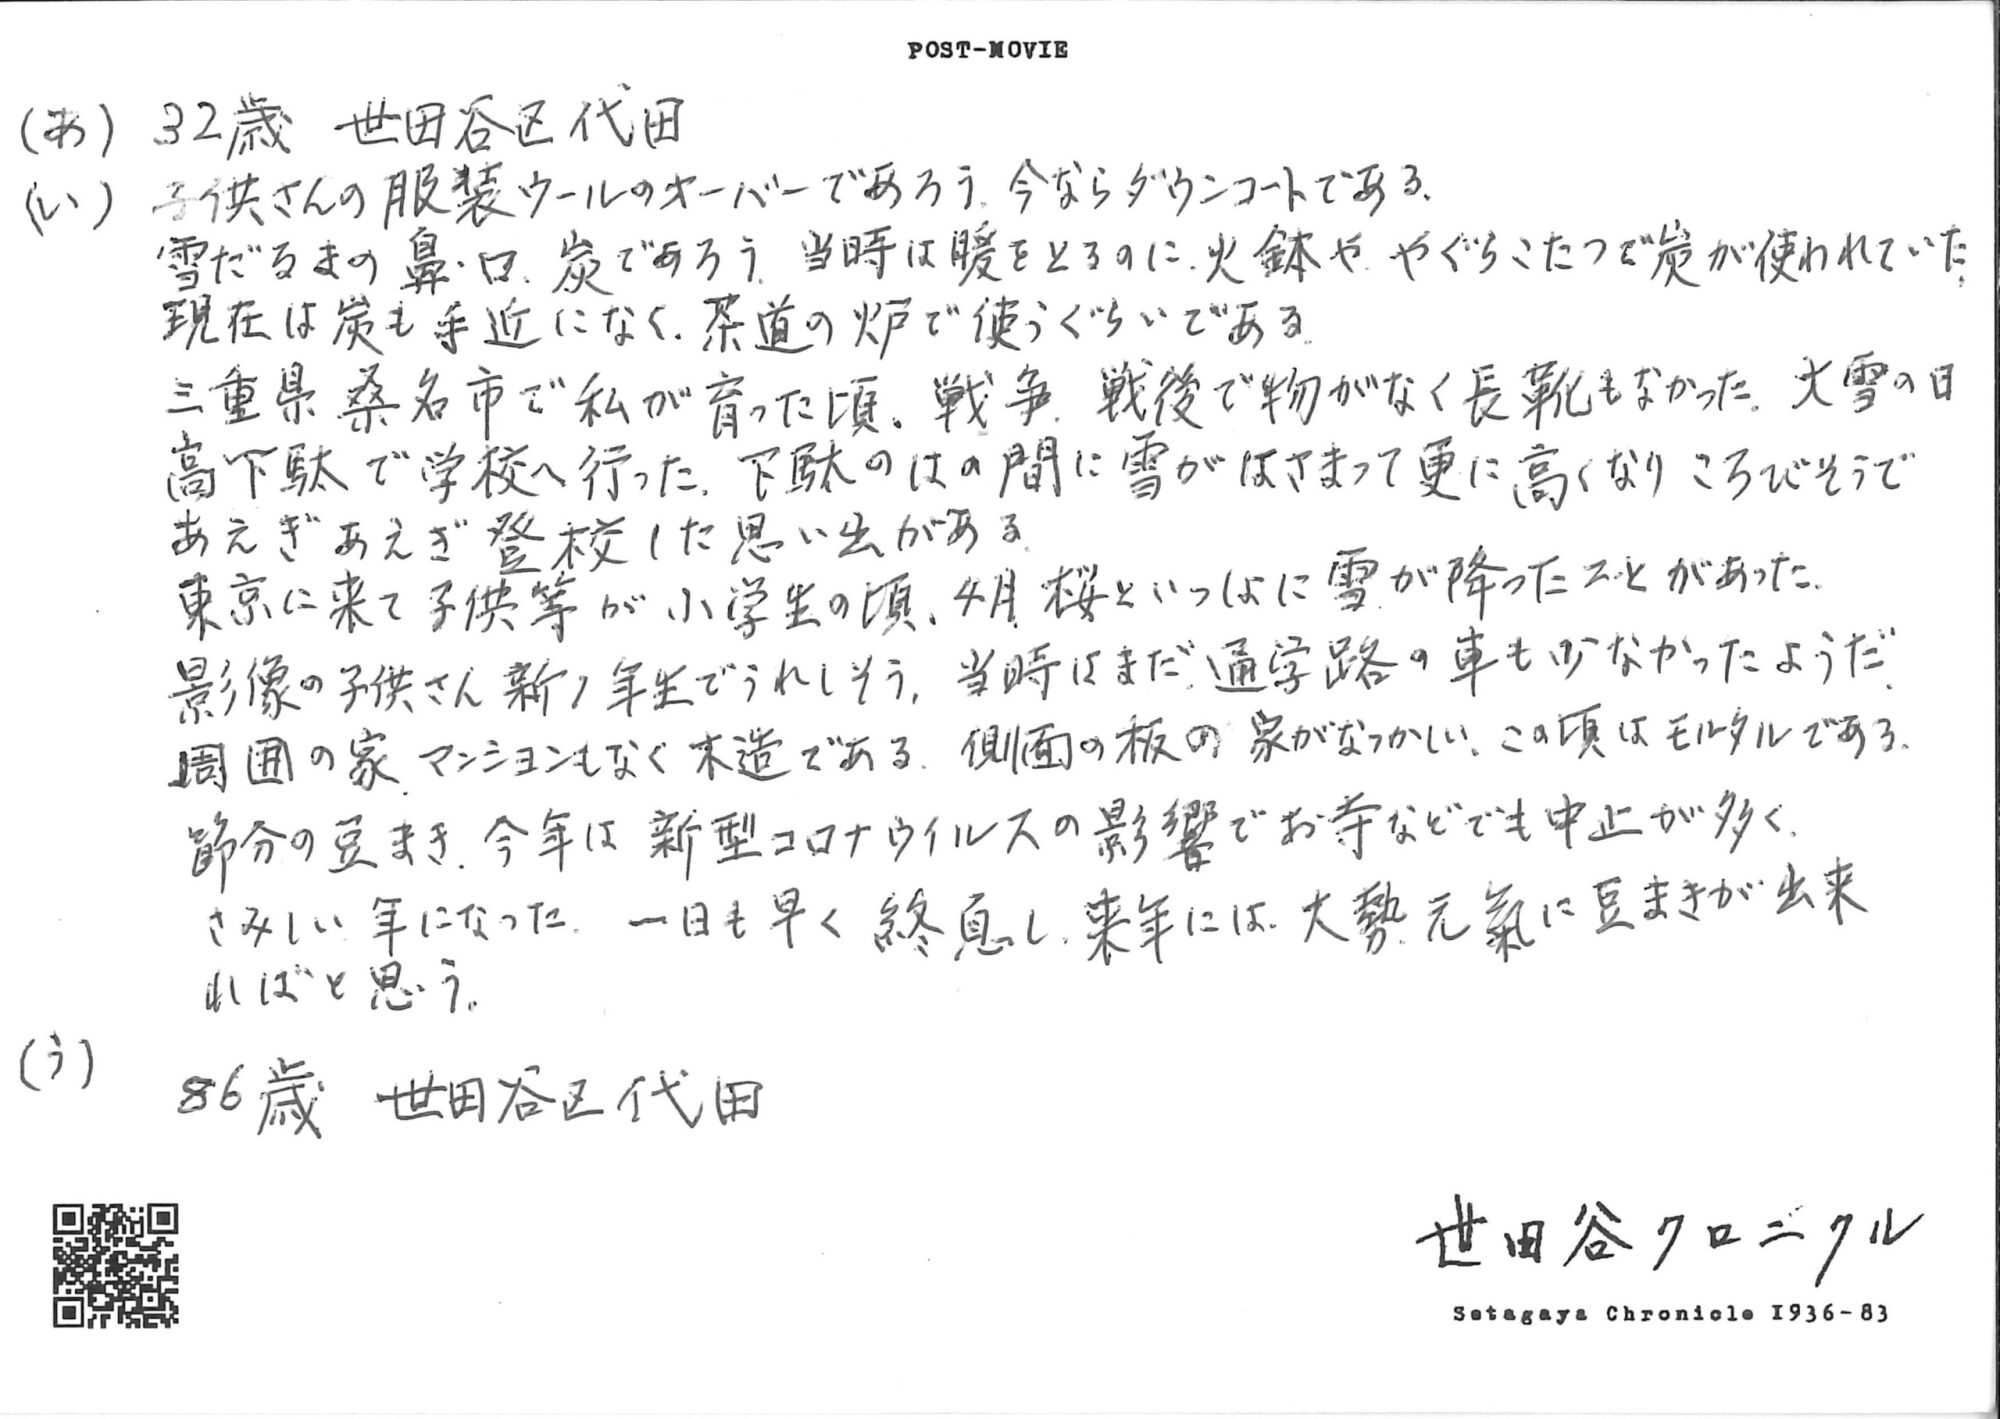 POST-MOVIE
(あ) 32歳 世田谷区代田
(い) 子供さんの服装ウールのオーバーであろう。今ならダウンコートである。
雪だるまの鼻・口、炭であろう。当時は暖をとるのに、火鉢や、やぐらこたつで炭が使われていた。
現在は炭も手近になく、茶道の炉で使うぐらいである。
三重県桑名市で私が育った頃。戦争、戦後で物がなく長靴もなかった。大雪の日
高下駄で学校へ行った。下駄のはの間に雪がはさまって更に高くなりころびそうで
あえぎあえぎ登校した思い出がある。
東京に来て子供等が小学生の頃、4月、桜といっしょに雪が降ったことがあった。
影像の子供さん新1年生でうれしそう。当時はまだ、通学路の車も少なかったようだ。
周囲の家、マンションもなく木造である。側面の板の家がなつかしい。この頃はモルタルである。
節分の豆まき、今年は新型コロナウイルスの影響でお寺などでも中止が多く、
さみしい年になった。一日も早く終息し、来年には、大勢、元氣に豆まきが出来
ればと思う。
(う)
86歳 世田谷区代田
世田谷クロニクル
Setagaya Chronicle 1936-83